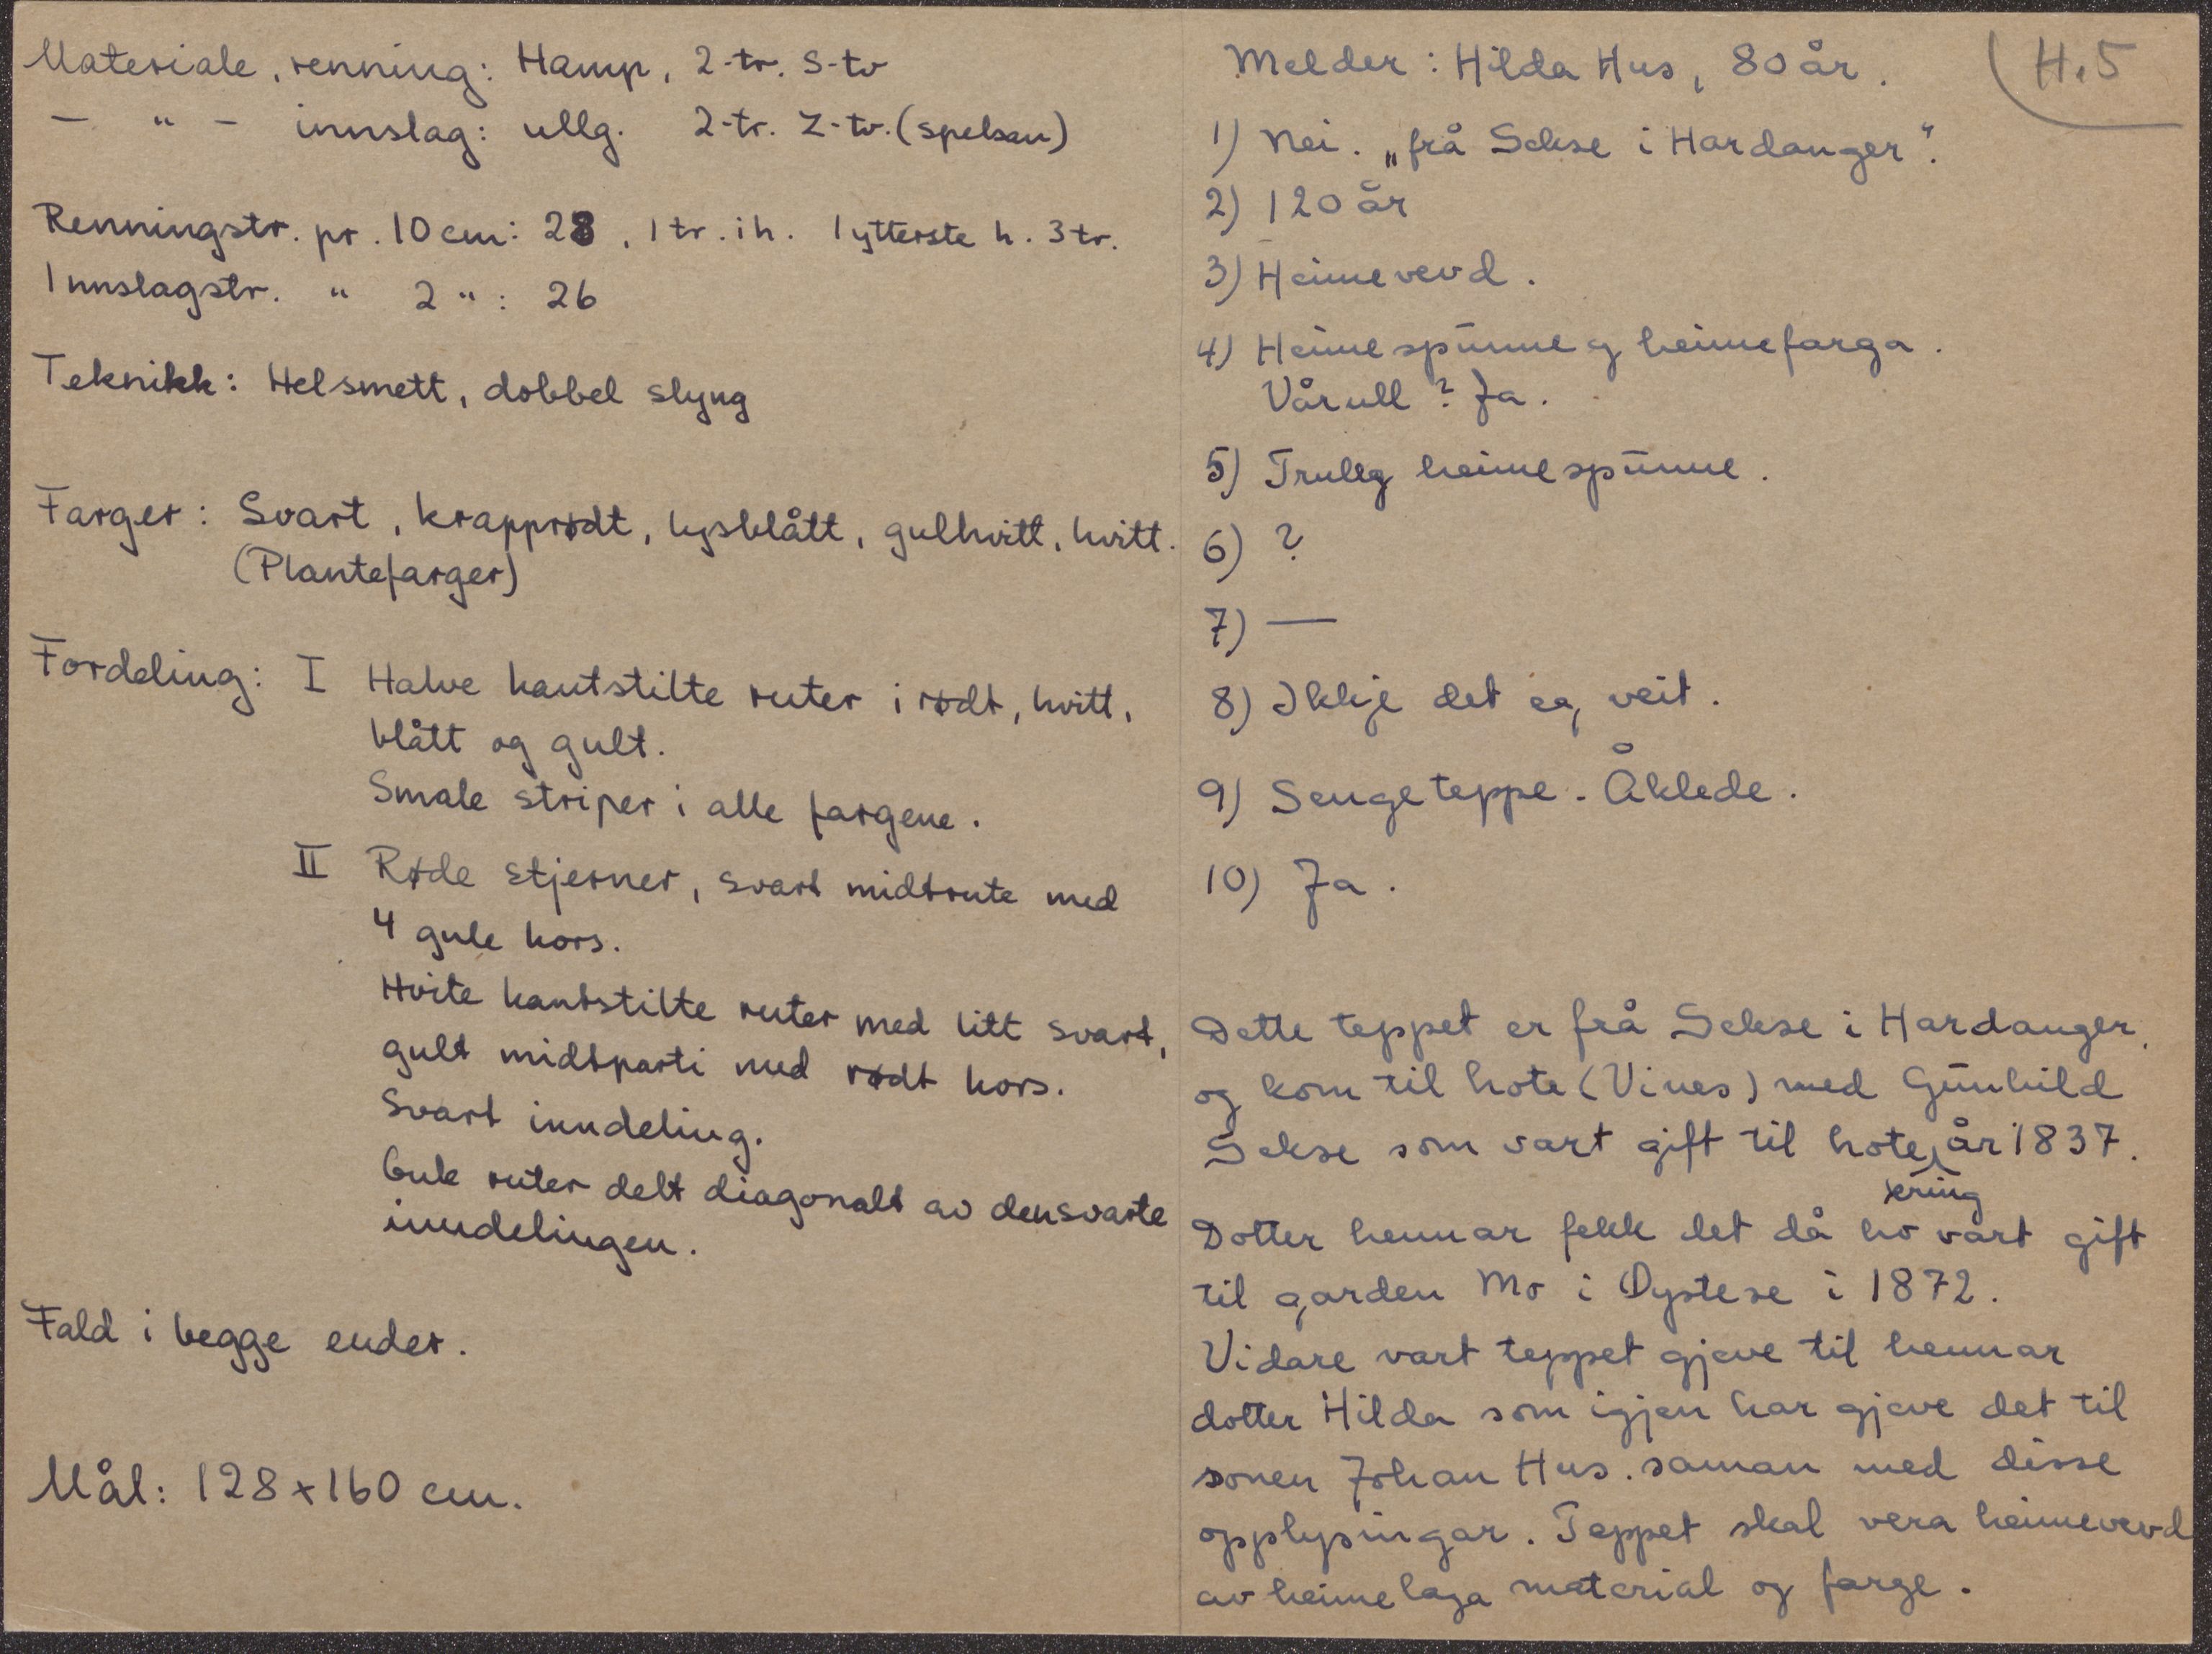 Materiale, renning: Hamp, 2-tr. S-tv
— " — innslag: ullg. 2-tr. Z-tv. (spelsau)
Renningstr. pr. 10 cm: 28, 1 tr. i h. 1 ytterste h. 3 tr.
Innslagstr. " 2 " : 26
Teknikk: Helsmett, dobbel slyng
Farger: Svart, krapprødt, lysblått, gulhvitt, hvitt.
(Plantefarger)
Fordeling: I Halve kantstilte ruter i rødt, hvitt,
blått og gult.
Smale striper i alle fargene.
II Røde stjerner, svart midtrute med
4 gule kors.
Hvite kantstilte ruter med litt svart,
gult midtparti med rødt kors.
Svart inndeling.
Gule ruter delt diagonalt av den svarte
inndelingen.
Fald i begge ender.
Mål: 128 x 160 cm.
H.5
Melder: Hilda Hus, 80 år.
1) Nei. „frå Sekse i Hardanger".
2) 120 år
3) Heimevevd.
4) Heimespunne og heimefarga.
Vårull? Ja.
5) Truleg heimespunne.
6) ?
7) —
8) Ikkje det eg veit.
9) Sengeteppe - Åklede.
10) Ja.
Dette teppet er frå Sekse i Hardanger,
og kom til hote (Vines) med Gunhild
Sekse som vart gift til hote, år 1837.
kring
Dotter hennar fekk det då ho vart gift
til garden Mo i Øystese i 1872.
Vidare vart teppet gjeve til hennar
dotter Hilda som igjen har gjeve det til
sonen Johan Hus. saman med disse
opplysingar. Teppet skal vera heimevevd
av heimelaga material og farge.